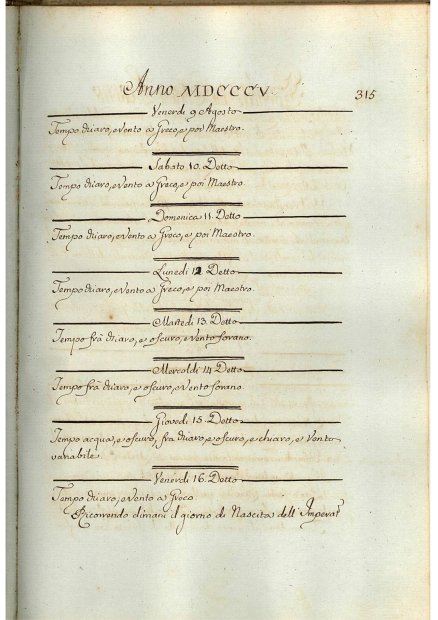 Anno MDCCCV.
315
Venerdi 9 Agosto
Tempo chiaro, e Vento a Greco, e poi Maestro.
Sabato 10. Detto
Tempo chiaro, e Vento a Greco, e poi Maestro.
Domenica 11. Detto
Tempo chiaro, e Vento a Greco, e poi Maestro.
Lunedi 12 Detto
Tempo chiaro, e Vento a Greco, e poi Maestro.
Martedi 13. Detto
Tempo frà chiaro, e oscuro, e Vento forano.
Mercoldi 14 Detto
Tempo frà chiaro, e oscuro, e Vento forano
Giovedi 15. Detto
Tempo acqua, e oscuro, fra chiaro, e oscuro, e chiaro, e Vento
variabile.
Venerdi 16. Detto
Tempo chiaro, e Vento a Greco
Ricorrendo dimani il giorno di Nascita dell' Imperat.